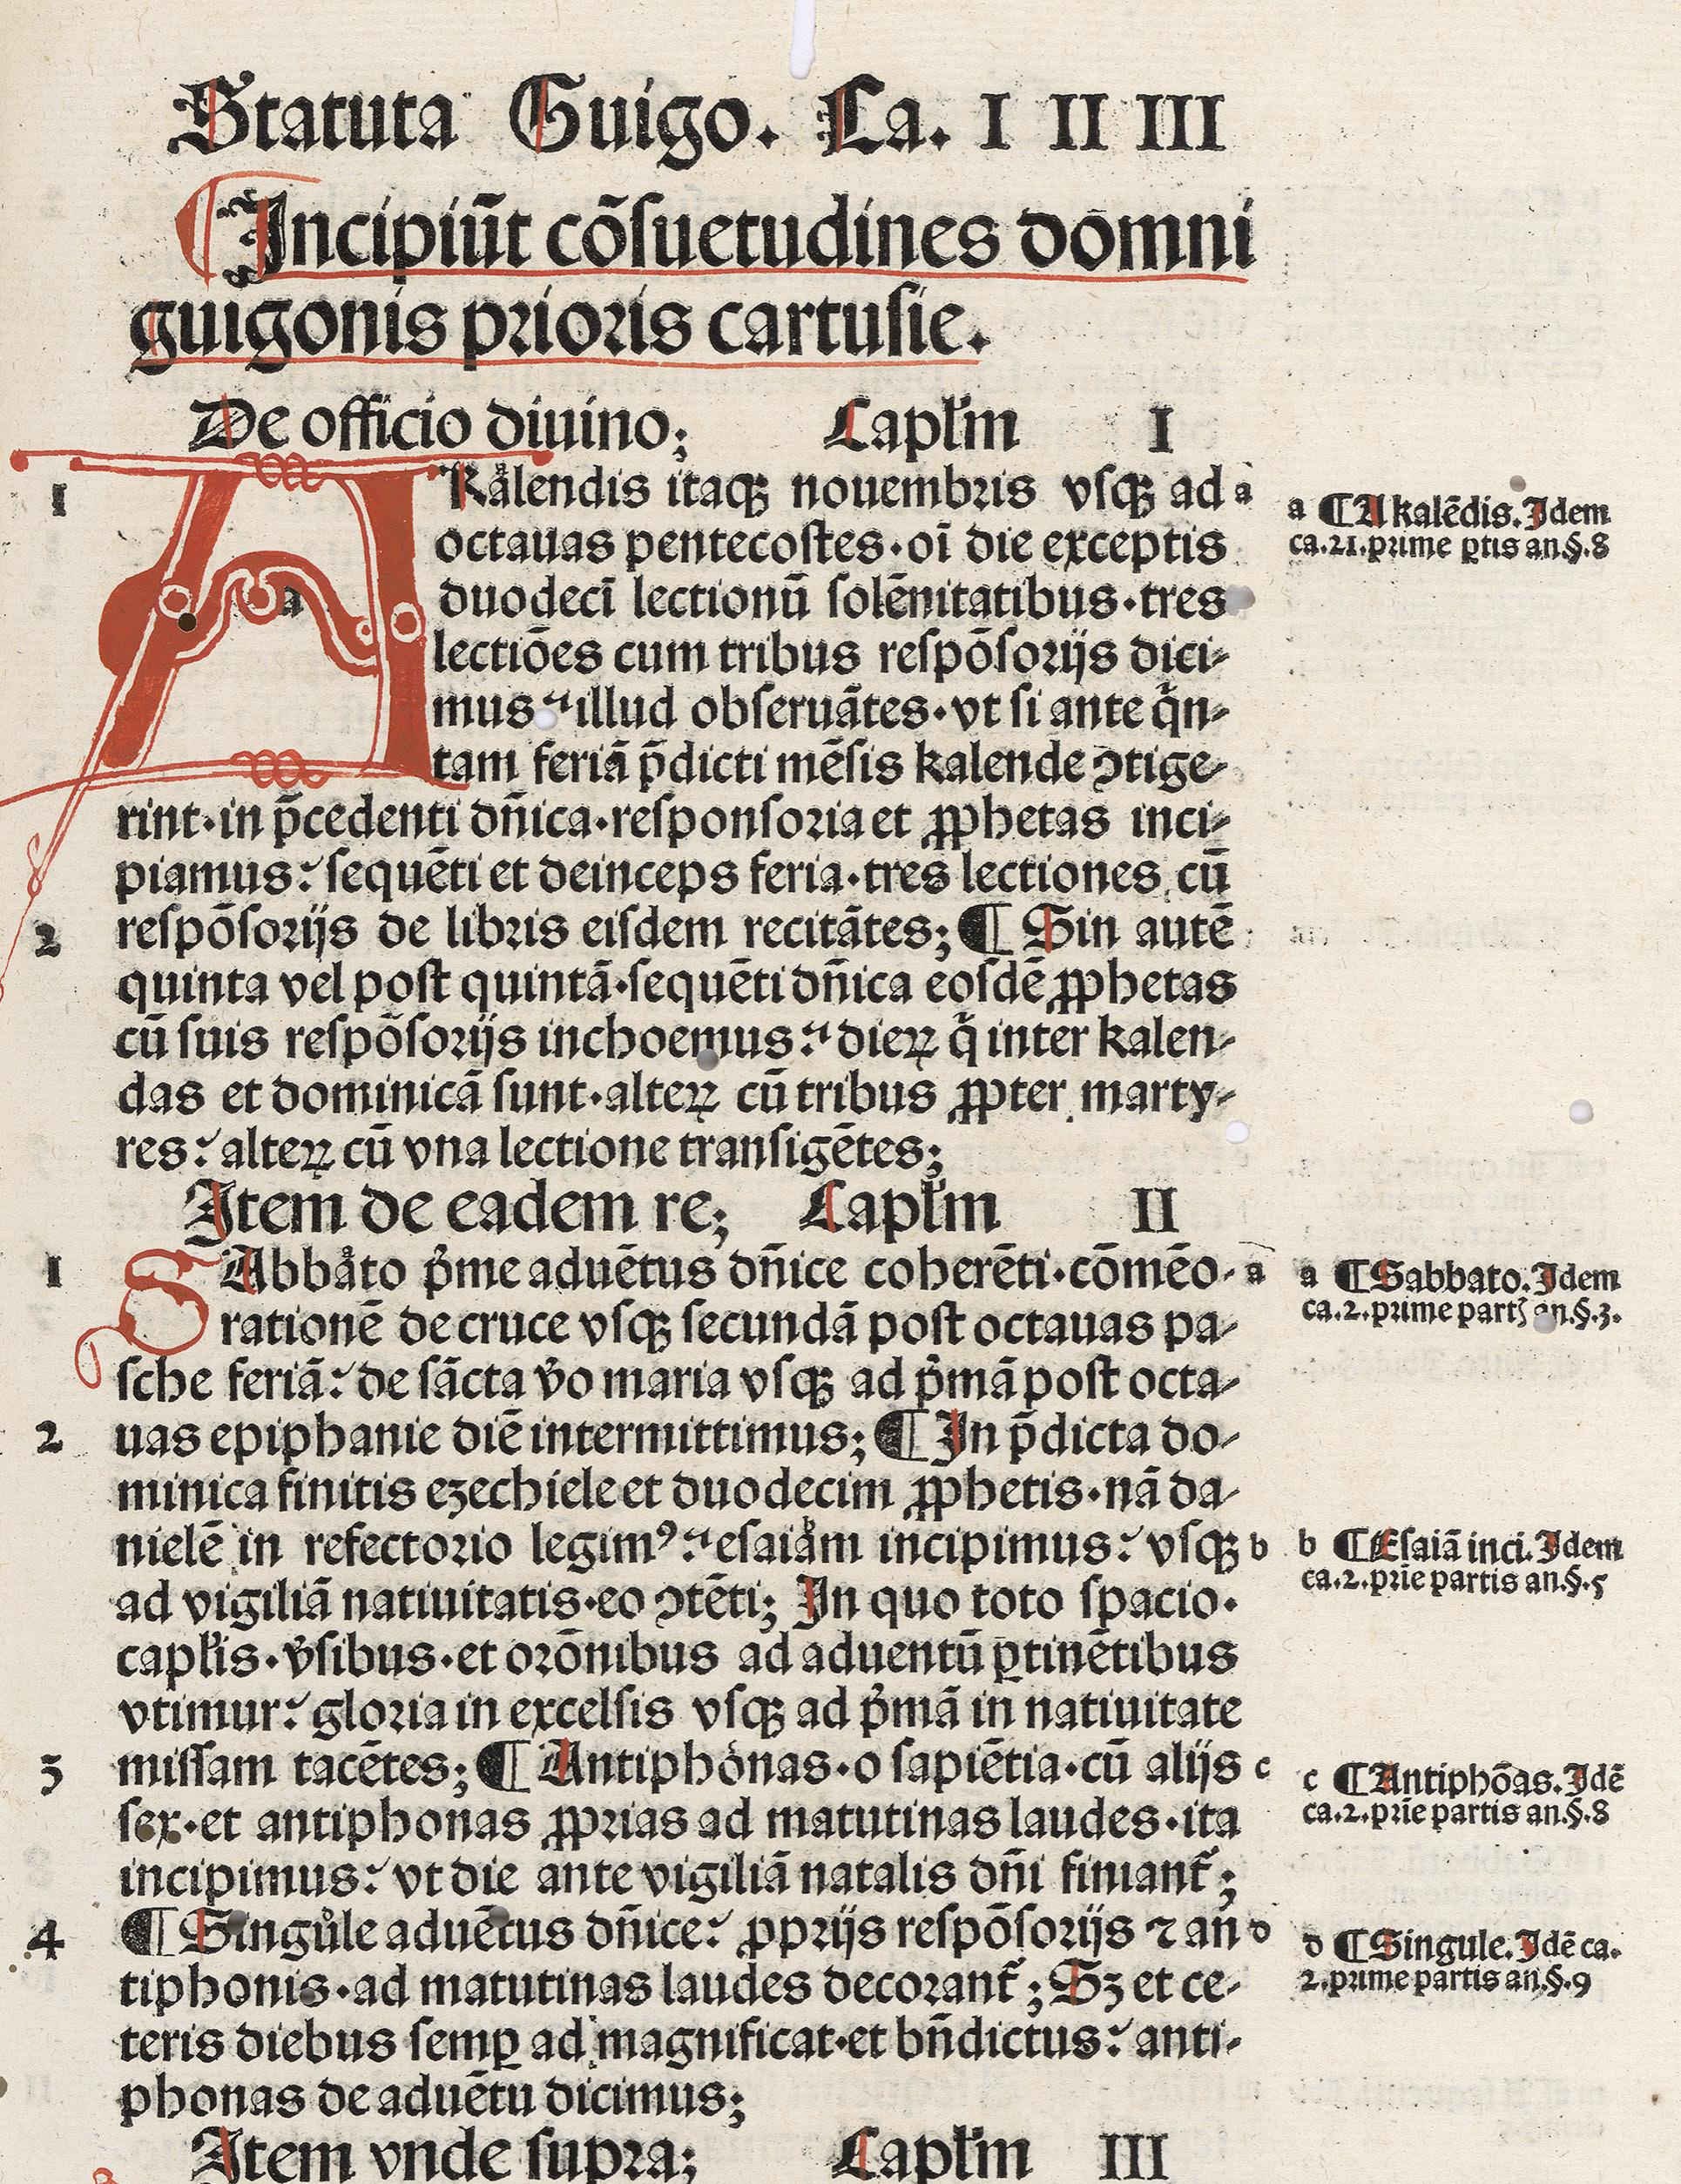 Statuta Guigo. Ca. I II III
¶ Incipiu̅t co̅ſuetudines domni
guigonis prioris cartuſie.
De officio diuino; Capl̅m I
1 A Kalendis itaqꝫ nouembris vſqꝫ ad a
octauas pentecoſtes·oi̅ die exceptis
duodeci̅ lectionu̅ ſole̅nitatibus·tres
lectio̅es cum tribus reſpo̅ſorijs dici⸗
mus: illud obſerua̅tes·vt ſi ante qͥn⸗
tam feria̅ p̅dicti me̅ſis kalende ꝯtige⸗
rint·in p̅cedenti dn̅ica·reſponſoria et ꝓphetas inci⸗
piamus: ſeque̅ti et deinceps feria·tres lectiones cu̅
2 reſpo̅ſorijs de libris eiſdem recita̅tes; ¶ Sin aute̅
quinta vel poſt quinta̅·ſeque̅ti dn̅ica eoſde̅ ꝓphetas
cu̅ ſuis reſpo̅ſorijs inchoemus: dieꝝ qͥ inter kalen⸗
das et dominica̅ ſunt·alteꝝ cu̅ tribus ꝓpter marty⸗
res: alteꝝ cu̅ vna lectione tranſige̅tes;
Item de eadem re; Capl̅m II
1 SAbbato pͥme adue̅tus dn̅ice cohere̅ti·co̅me̅o⸗ a
ratione̅ de cruce vſqꝫ ſecunda̅ poſt octauas pa⸗
ſche feria̅: de ſa̅cta v̊o maria vſqꝫ ad pͥma̅ poſt octa⸗
2 uas epiphanie die̅ intermittimus; ¶ In p̅dicta do⸗
minica finitis ezechiele et duodecim ꝓphetis·na̅ da⸗
niele̅ in refectorio legimꝰ: eſaiam incipimus: vſqꝫ b
ad vigilia̅ natiuitatis·eo ꝯte̅ti; In quo toto ſpacio·
capl̅is·v̉ſibus·et oro̅nibus ad aduentu̅ ꝑtine̅tibus
vtimur: gloria in excelſis vſqꝫ ad pͥma̅ in natiuitate
3 miſſam tace̅tes; ¶ Antiphonas·o ſapie̅tia·cu̅ alijs c
ſex·et antiphonas ꝓprias ad matutinas laudes·ita
incipimus: vt die ante vigilia̅ natalis dn̅i finiant᷑;
4 ¶ Singule adue̅tus dn̅ice: ꝓprijs reſpo̅ſorijs ⁊ an d
tiphonis·ad matutinas laudes decorant᷑; Sꝫ et ce⸗
teris diebus ſemꝑ ad magnificat·et bn̅dictus: anti⸗
phonas de adue̅tu dicimus;
Item vnde ſupra; Capl̅m III
a ¶ A kale̅dis. Idem
ca.21.prime ꝑtis an.§.8
a ¶ Sabbato. Idem
ca.2.prime partꝭ an.§.3.
b ¶ Eſaia̅ inci. Idem
ca.2.pri̅e partis an.§.5
c ¶ Antipho̅as. Ide̅
ca.2.pri̅e partis an.§.8
d ¶ Singule. Ide̅ ca.
2.prime partis an.§.9